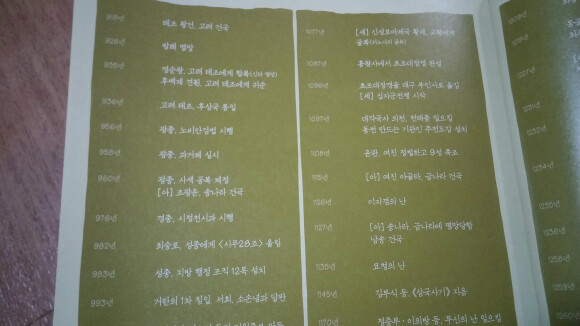 918년 태조 왕건, 고려 건국
926년 발해 멸망
935년 경순왕, 고려 태조에게 항복(신라 멸망)
후백제 견훤, 고려 태조에게 귀순
936년 고려 태조, 후삼국 통일
956년 광종, 노비안검법 시행
958년 광종, 과거제 실시
960년 광종, 사색 공복 제정
[아] 조광윤, 송나라 건국
976년 경종, 시정전시과 시행
982년 최승로, 성종에게 〈시무28조〉 올림
983년 성종, 지방 행정 조직 12목 설치
993년 거란의 1차 침입, 서희, 소손녕과 담판
1077년 [세] 신성로마제국 황제, 교황에게
굴복(카노사의 굴욕)
1087년 흥왕사에서 초조대장경 완성
1096년 초조대장경을 대구 부인사로 옮김
[세] 십자군전쟁 시작
1097년 대각국사 의천, 천태종 일으킴
동전 만드는 기관인 주전도감 설치
1108년 윤관, 여진 정벌하고 9성 축조
1115년 [아] 여진 아골타, 금나라 건국
1126년 이자겸의 난
1127년 [아] 송나라, 금나라에 멸망당함
남송 건국
1135년 묘청의 난
1145년 김부식 등, 《삼국사기》 지음
1170년 정중부·이의방 등, 무신의 난 일으킴
1227년
1231년
1232년
1234년
1235년
1236년